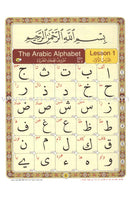 بِسْمِ اللهِ الرَّحْمٰنِ الرَّحِيْمِ
The Arabic Alphabet Lesson 1
ا ب ت ث ج
ح خ د ذ ر
ز س ش ص ض
ط ظ ع غ ف
ق ك ل م ن
و ه ء ي